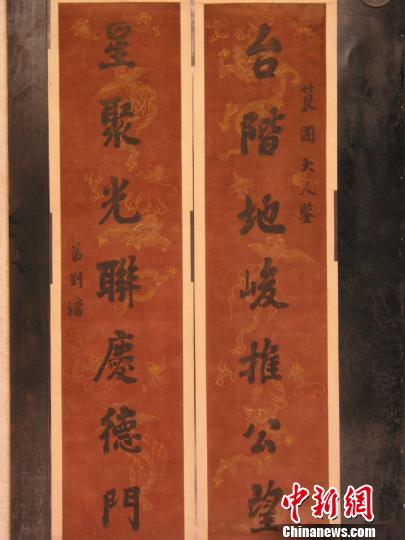 台階地峻推公望
圓大人鑒
星聚光聯慶德門
弟劉墉
中新网
Chinanews.com